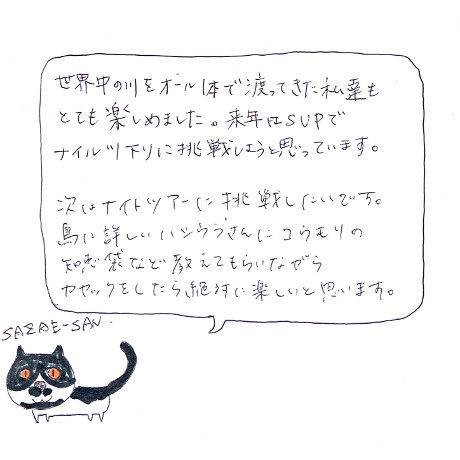 世界中の川をオール1本で渡ってきた私達も
とても楽しめました。来年はSUPで
ナイル川下りに挑戦しようと思っています。
次はナイトツアーに挑戦したいです。
鳥に詳しいハシウラさんにコウモリの
知恵袋など教えてもらいながら
カヤックをしたら絶対に楽しいと思います。
SAZAE-SAN.